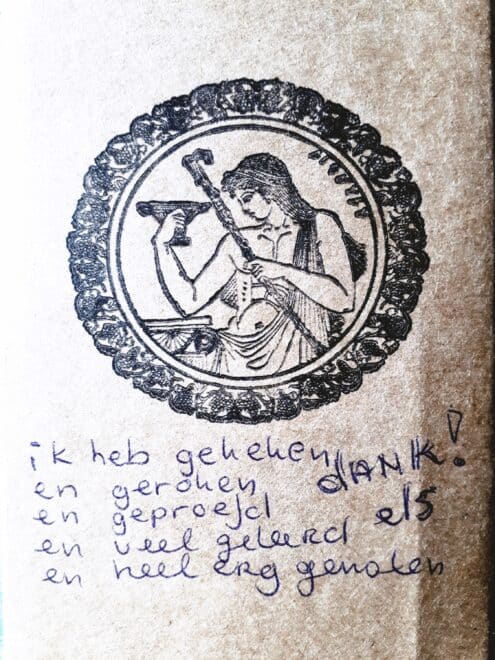 ik heb gekeken
en geroken
en geproefd
en veel geleerd
en heel erg genoten
dANK!
els